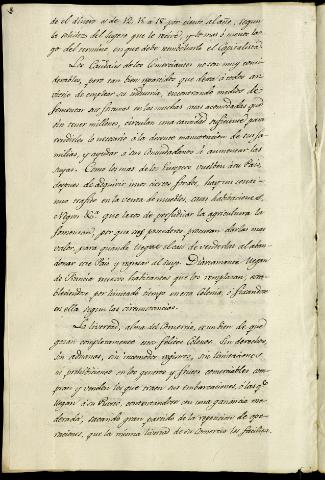 de el dinero es de 12, 15 a 18 por ciento al año, segun
la solidez del sugeto que le recive, y lo mas ó menos lar-
go del termino en que debe rembolsarle el Capitalista.
Los Caudales de los Comerciantes no son muy consi-
derables, pero tan bien repartidos que dejan á todos un
medio de emplear su industria, encontrando medios de
fomentar sus fortunas en las muchas casas acomodadas que
sin tener millones, circulan una cantidad suficiente para
rendirles lo necesario á la decente manutencion de sus fa-
milias, y ayudar á sus Conciudadanos á aumentar las
suyas. Como los mas de los Europeos vuelven á su Pais,
despues de adquirir unos ciertos fondos, hay un conti-
nuo trafico en la venta de muebles, casas, habitaciones,
Negros &c.a que lexos de perjudicar la agricultura la
fomentan, por que sus poseedores procuran darlas mas
valor, para quando llegue el caso de venderlas al aban-
donar este Pais y regresar al suyo. Diariamente llegan
de Francia nuevos habitantes que los remplazan, esta-
bleciendose por limitado tiempo en esta Colonia, ó fixandose
en ella segun las circunstancias.
La livertad, alma del Comercio, es un bien de que
gozan completamente estos felices Colonos. Sin derechos,
sin aduanas, sin incomodo registro, sin limitaciones,
ni prohibiciones en los generos y frutos comerciables com-
pran y venden los que traen sus embarcaciones, ó las q.e
llegan á su Puerto, contentandose con una ganancia mo-
derada, sacando gran partido de la repeticion de ope-
raciones, que la misma livertad de su Comercio les facilita.